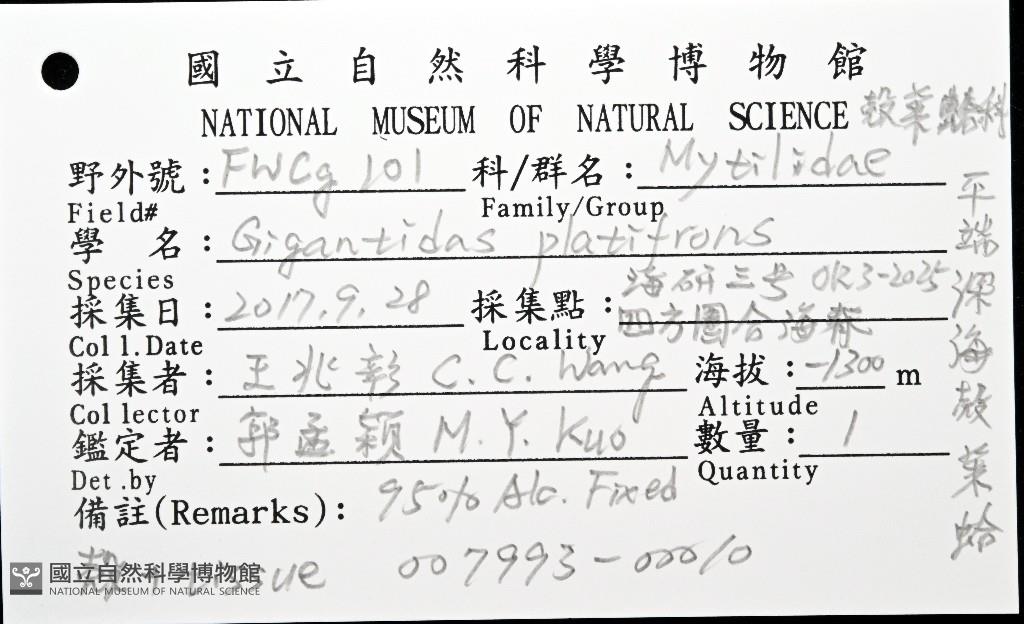 國立自然科學博物館
NATIONAL MUSEUM OF NATURAL SCIENCE 殼菜蛤科
野外號：FWCg 101 科/群名：Mytilidae
Field# Family/Group
學 名：Gigantidas platifrons
Species
海研三号 OR3-2025
採集日：2017.9.28 採集點：四方圍合海脊
Coll.Date Locality
採集者：王兆彰 C.C. Wang 海拔：-1300 m
Collector Altitude
鑑定者：郭孟穎 M.Y. Kuo 數量：1
Det.by Quantity
備註(Remarks)：95% Alc. Fixed
殼+tissue 007993-00010
平端深海殼菜蛤
國立自然科學博物館
NATIONAL MUSEUM OF NATURAL SCIENCE